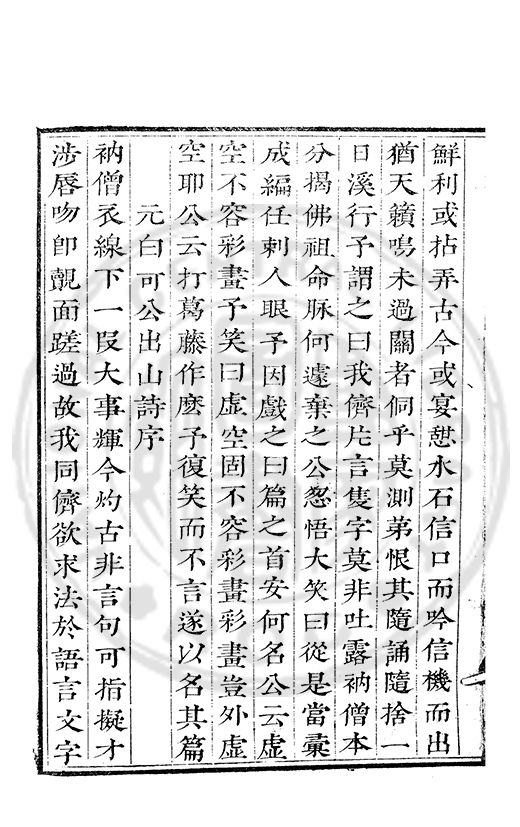 鮮利或拈弄古今或宴憇水石信口而吟信機而出
猶天籟鳴未過關者侗乎莫測第恨其隨誦隨捨一
日溪行予謂之曰我儕片言隻字莫非吐露衲僧本
分揭佛祖命脉何遽棄之公忽悟大笑曰從是當彙
成編任刺人眼予因戲之曰篇之首安何名公云虛
空不容彩畫予笑曰虛空固不容彩畫彩畫豈外虛
空耶公云打葛藤作麽予復笑而不言遂以名其篇
元白可公出山詩序
衲僧衣線下一段大事輝今灼古非言句可指擬才
涉唇吻卽覿面蹉過故我同儕欲求法於語言文字